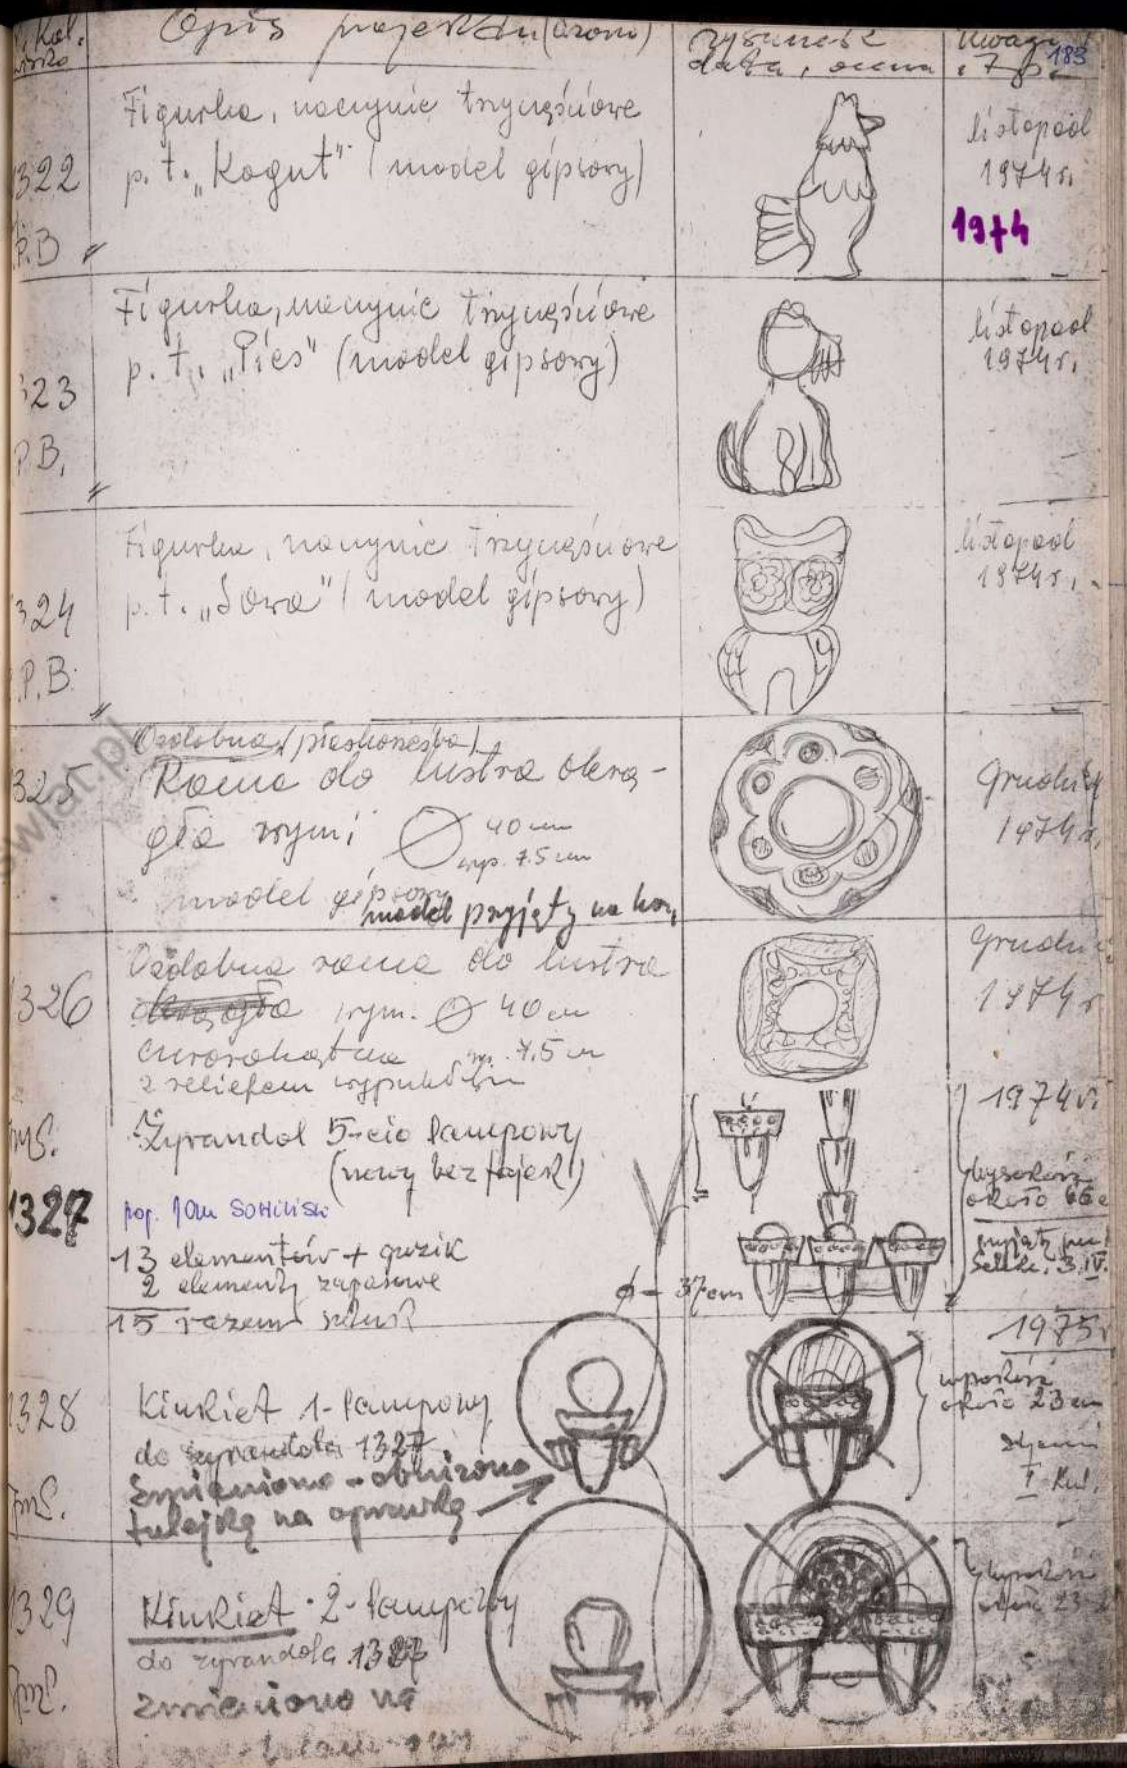 Opis projektu (wzoru)
rysunek data, ocena
Uwagi
183
1322
P.B
Figurka, naczynie trzyczęściowe
p.t. „Kogut” (model gipsowy)
listopad
1974r.
1974
323
P.B.
Figurka, naczynie trzyczęściowe
p.t. „Pies” (model gipsowy)
listopad
1974r.
324
P.B.
Figurka, naczynie trzyczęściowe
p.t. „Sowa” (model gipsowy)
listopad
1974r.
swiat.pl
325
Ozdobna (płaskorzeźba)
Rama do lustra okrą-
gła wym: Ø 40 cm
wys. 7.5 cm
model gipsowy
model przyjęty na kom.
Grudzień
1974r.
326
Ozdobna rama do lustra
okrągła wym. Ø 40 cm
czworokątna wys. 7.5 cm
z reliefem wypukłym
Grudzień
1974r
1327
Żyrandol 5-cio lampowy
(nowy bez fajek)
13 elementów + guzik
2 elementy zapasowe
15 razem sztuk
Ø - 37cm
1974r.
Wysokość
około 66 c
1328
Kinkiet 1-lampowy
do żyrandola 1327
Zmieniono - obniżono
tulejkę na oprawkę
1975r
wysokość
około 23 cm
I Kw.
1329
Kinkiet 2-lampowy
do żyrandola 1327
zmieniono na
Wysokość
około 23